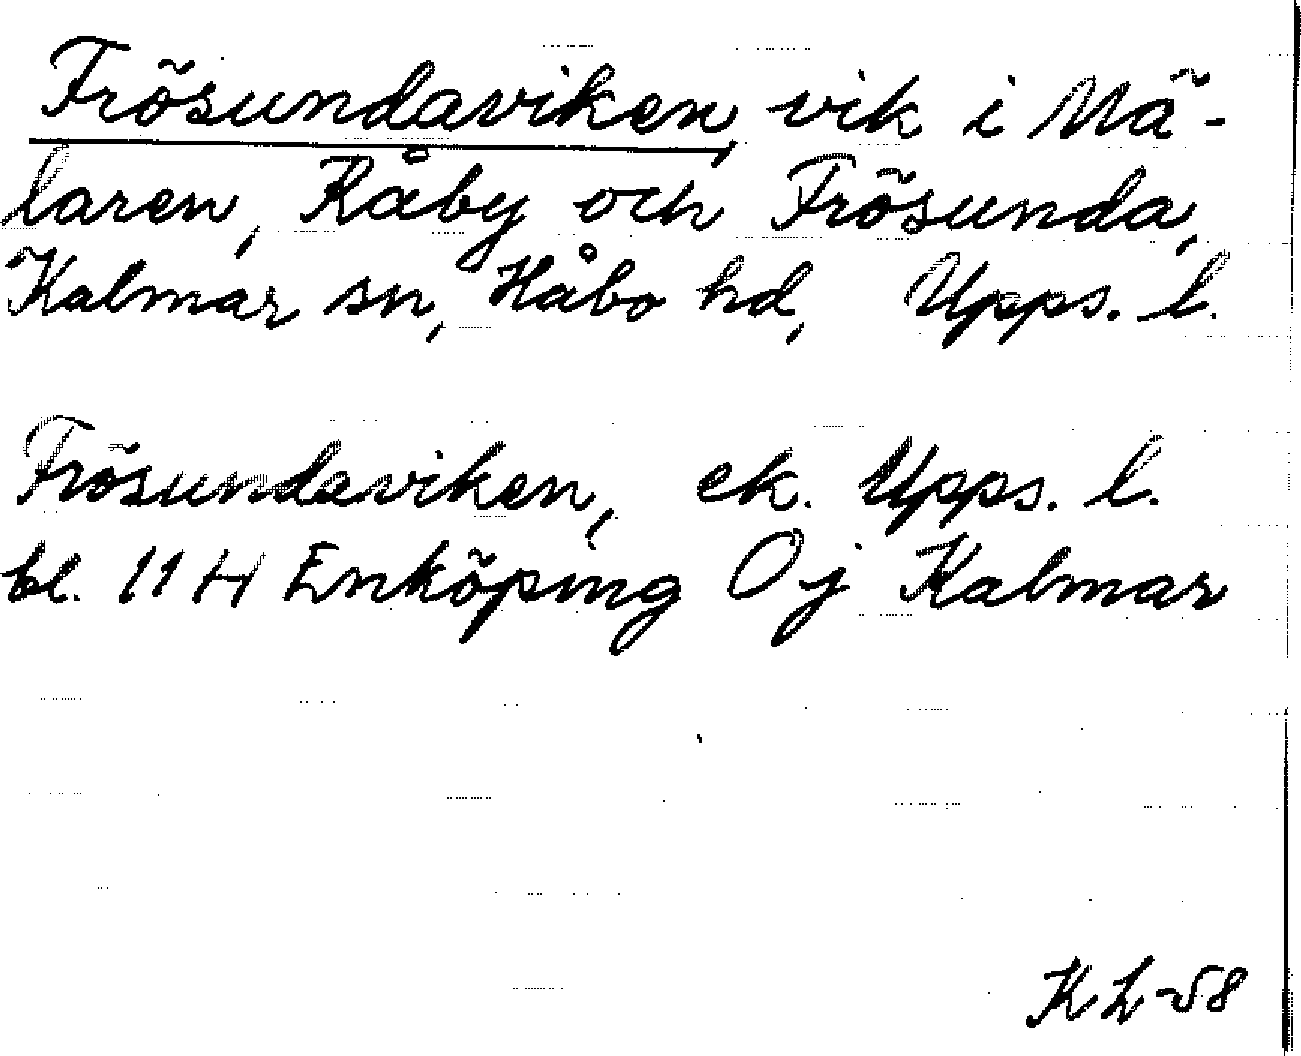 Frösundaviken, vik i Mä-
laren, Råby och Frösunda,
Kalmar sn, Håbo hd, Upps. l.
Frösundaviken, ek. Upps. l.
bl. 11 H Enköping Oj Kalmar
KL-58